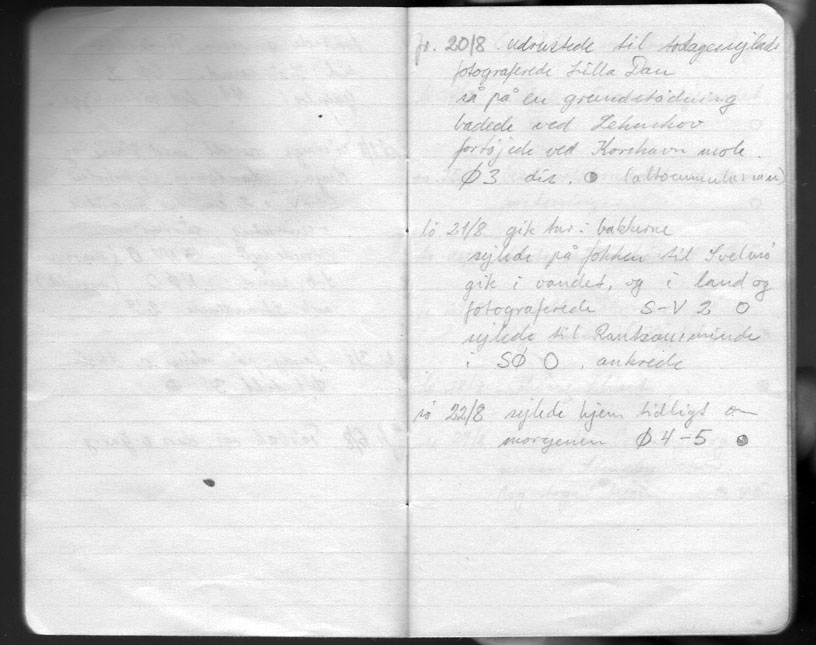 fr. 20/8 udrustede til todagessejlads
fotograferede Lilla Dan
så på en grundstødning
badede ved Lehnskov
fortøjede ved Korshavn mole.
Ø3 dis. ● (altocumulus
lö 21/8 gik tur i bakkerne
sejlede på fokken til Svelmø
gik i vandet, og i land og
fotograferede S-V 2 O
sejlede til Rantzausminde
i SØ O . ankrede
sö 22/8 sejlede hjem tidligt om
morgenen Ø 4-5 ●